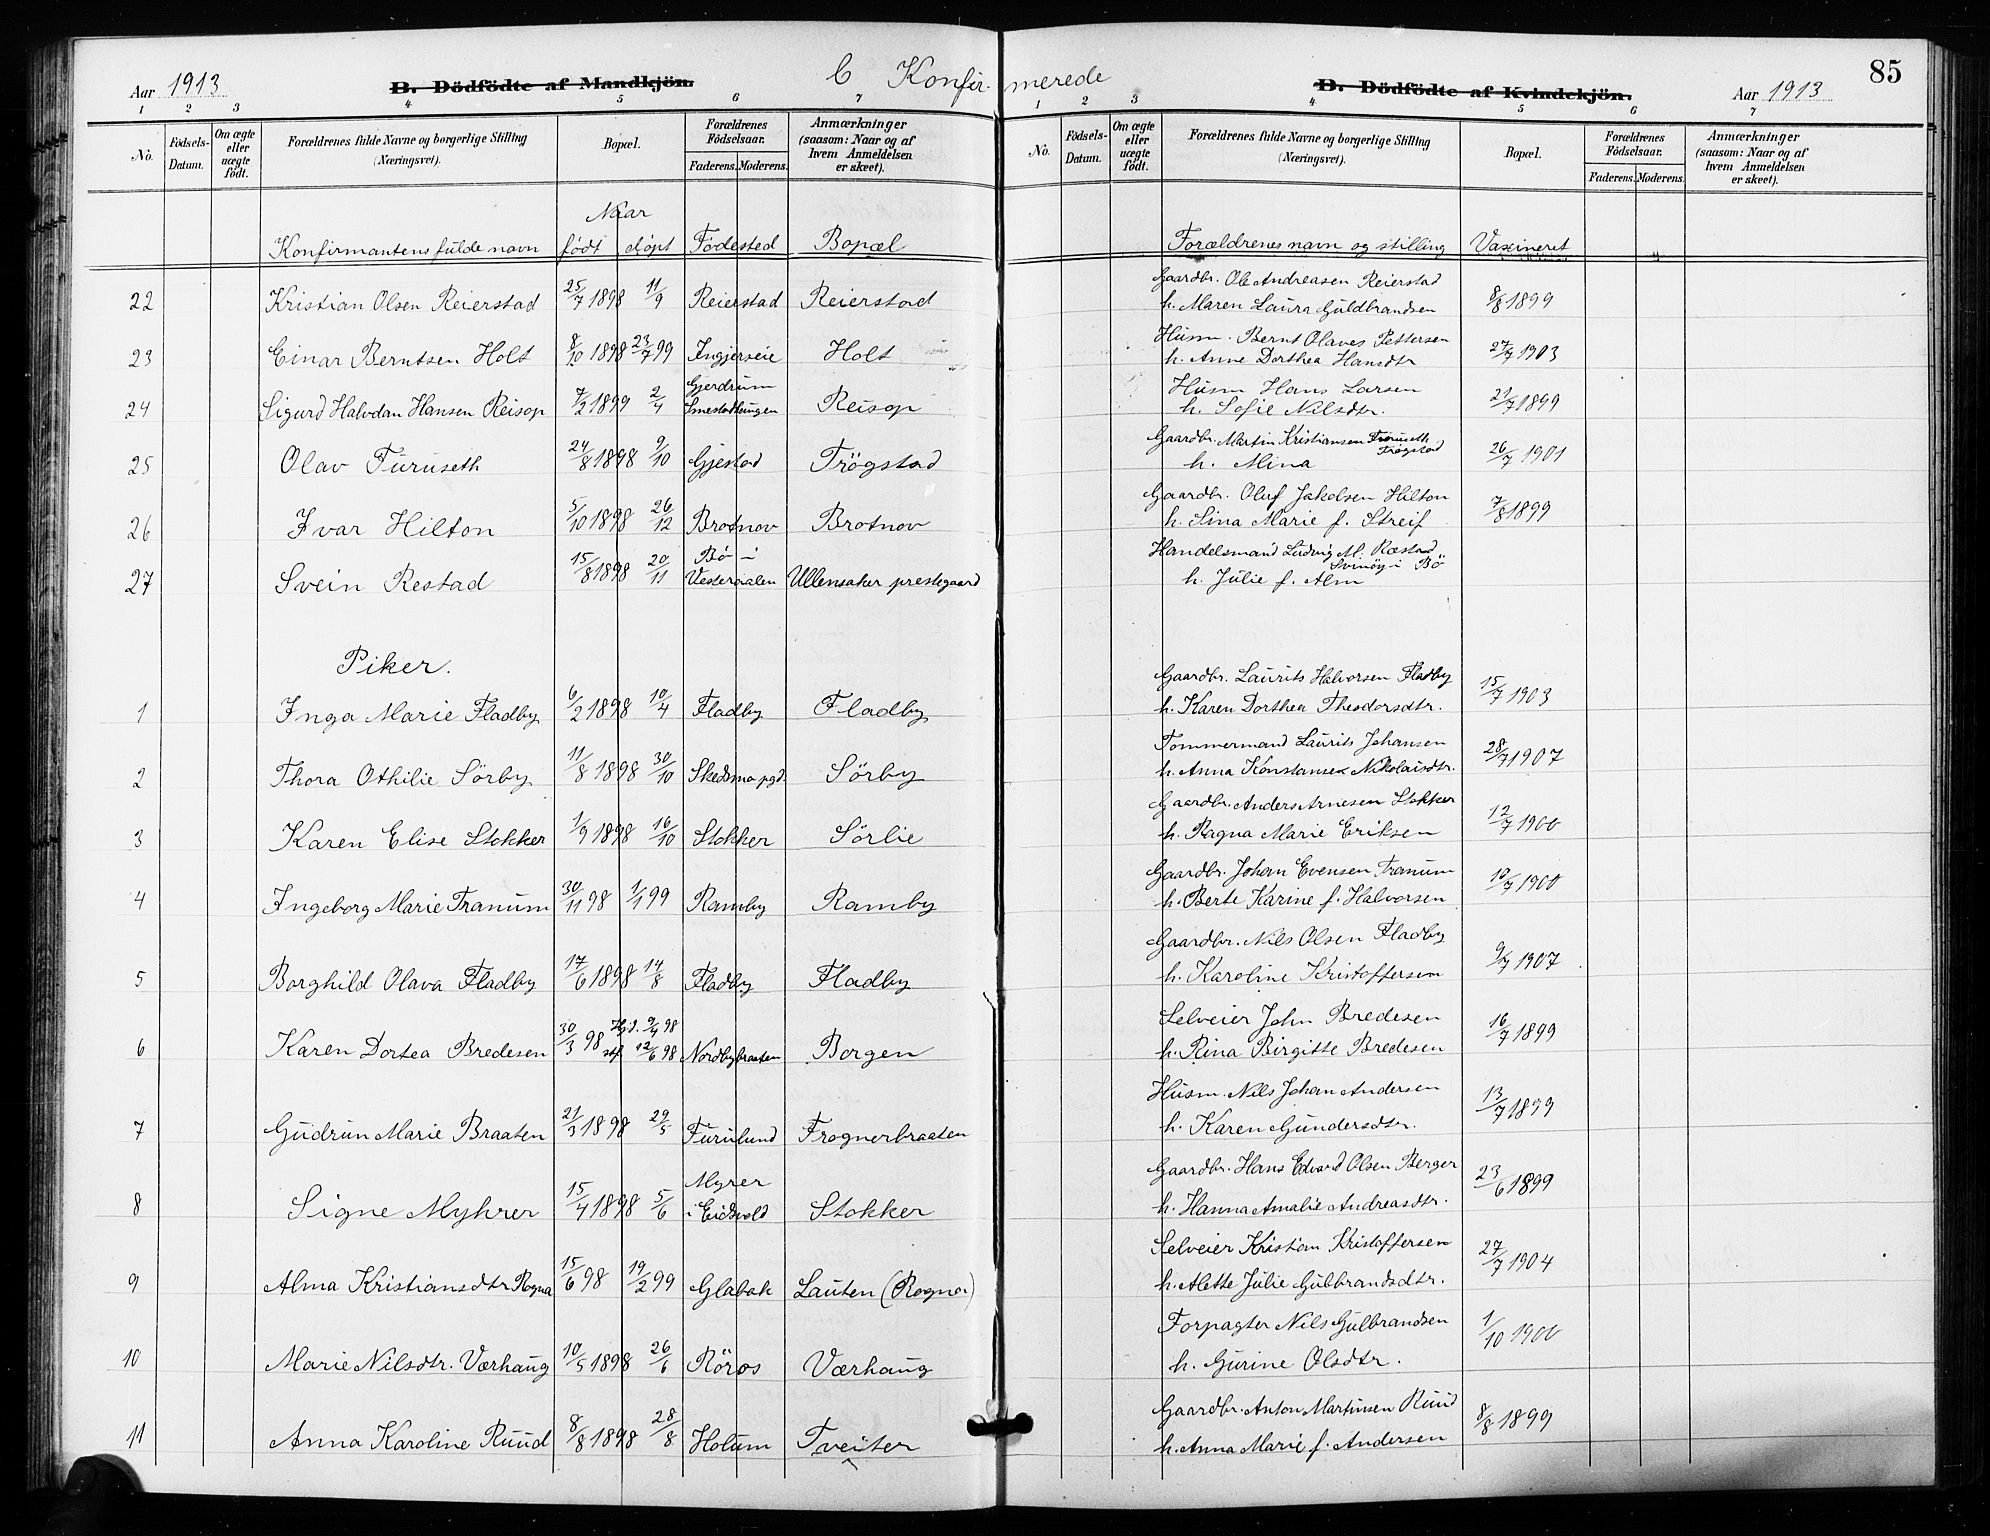 Aar 1913 B. Dödfödte af Mandkjön. C Konfirmerede D. Dödfödte af Kvindekjön. Aar 1913 85
1 2 3 4 5 6 7 1 2 3 4 5 6 7
No. Födsels-Datum. Om ægte eller uægte födt. Forældrenes fulde Navne og borgerlige Stilling (Næringsvei). Bopæl. Forældrenes Födselsaar. Faderens. Moderens. Anmærkninger (saasom: Naar og af hvem Anmeldelsen er skeet).
No. Födsels-Datum. Om ægte eller uægte födt. Forældrenes fulde Navne og borgerlige Stilling (Næringsvei). Bopæl. Forældrenes Födselsaar. Faderens. Moderens. Anmærkninger (saasom: Naar og af hvem Anmeldelsen er skeet).
Naar
Konfirmantens fulde navn født døpt Fødested Bopæl Forældrenes navn og stilling Vaxineret
Gaardbr. Ole Andreasen Reierstad
22 Kristian Olsen Reierstad 25/7 1898 11/9 Reierstad Reierstad h. Maren Laura Guldbrandsen 8/8 1899
Husm. Bernt Olaves Pettersen
23 Einar Berntsen Holt 8/10 1898 23/7 99 Ingjerseie Holt h. Anne Dorthea Hansdtr 27/7 1903
Gjerdrum Husm Hans Larsen
24 Sigurd Halvdan Hansen Reisop 7/2 1899 2/4 Smestadengen Reisop h. Sofie Nilsdtr. 21/7 1899
Gaardbr. Martin Kristiansen Furuseth Trøgstad
25 Olav Furuseth 24/8 1898 9/10 Gjestad Trögstad h. Mina 26/7 1901
Gaardbr. Oluf Jakobsen Hilton
26 Ivar Hilton 5/10 1898 26/12 Brotnov Brotnov h. Lina Marie f. Streif 7/8 1899
Bø i Handelsmand Ludvig M. Ræstad Svinöy i Bö
27 Svein Restad 15/8 1898 20/11 Vesteraalen Ullensaker prestegaard h. Julie f. Alm
Piker.
Gaardbr. Laurits Halvorsen Fladby
1 Inga Marie Fladby 6/2 1898 10/4 Fladby Fladby h. Karen Dorthea Theodorsdtr. 15/7 1903
Tommermand Laurits Johansen
2 Thora Othilie Sörby 11/8 1898 30/10 Skedsmo pgd. Sörby h. Anna Konstanse Nikolaisdtr. 28/7 1907
Gaardbr. Anders Arnesen Stokker
3 Karen Elise Stokker 1/9 1898 16/10 Stokker Sörlie h. Ragna Marie Eriksen 12/7 1900
Gaardbr. Johan Evensen Tranum
4 Ingeborg Marie Tranum 30/11 98 1/1 99 Ramby Ramby h. Berte Karine f. Halvorsen 10/7 1900
Gaardbr. Nils Olsen Fladby
5 Borghild Olava Fladby 17/6 1898 14/8 Fladby Fladby h. Karoline Kristoffersen 9/7 1907
Hjd. 9/4 98 Selveier John Bredesen
6 Karen Dortea Bredesen 30/3 98 stf. 12/6 98 Nordbybraaten Borgen h. Rina Birgitte Bredesen 16/7 1899
Husm. Nils Johan Andersen
7 Gudrun Marie Braaten 21/3 1898 29/5 Furulund Frognerbraaten h. Karen Gundersdtr. 13/7 1899
Myrer Gaardbr. Hans Edvard Olsen Berger
8 Signe Myhrer 15/4 1898 5/6 i Eidsvold Stokker h. Hanna Amalie Andreasdtr. 23/6 1899
Selveier Kristian Kristoffersen
9 Alma Kristiansdtr Rogna 15/6 98 19/2 99 Glabak Lauten (Rogna) h. Alette Julie Gulbrandsdtr. 27/7 1904
Forpagter Nils Gulbrandsen
10 Marie Nilsdtr. Værhaug 10/5 1898 26/6 Röros Værhaug h. Gurine Olsdtr. 1/10 1900
Gaardbr. Anton Martinsen Ruud
11 Anna Karoline Ruud 8/8 1898 28/8 Holum Tveiter h. Anna Marie f. Andersen 8/8 1899